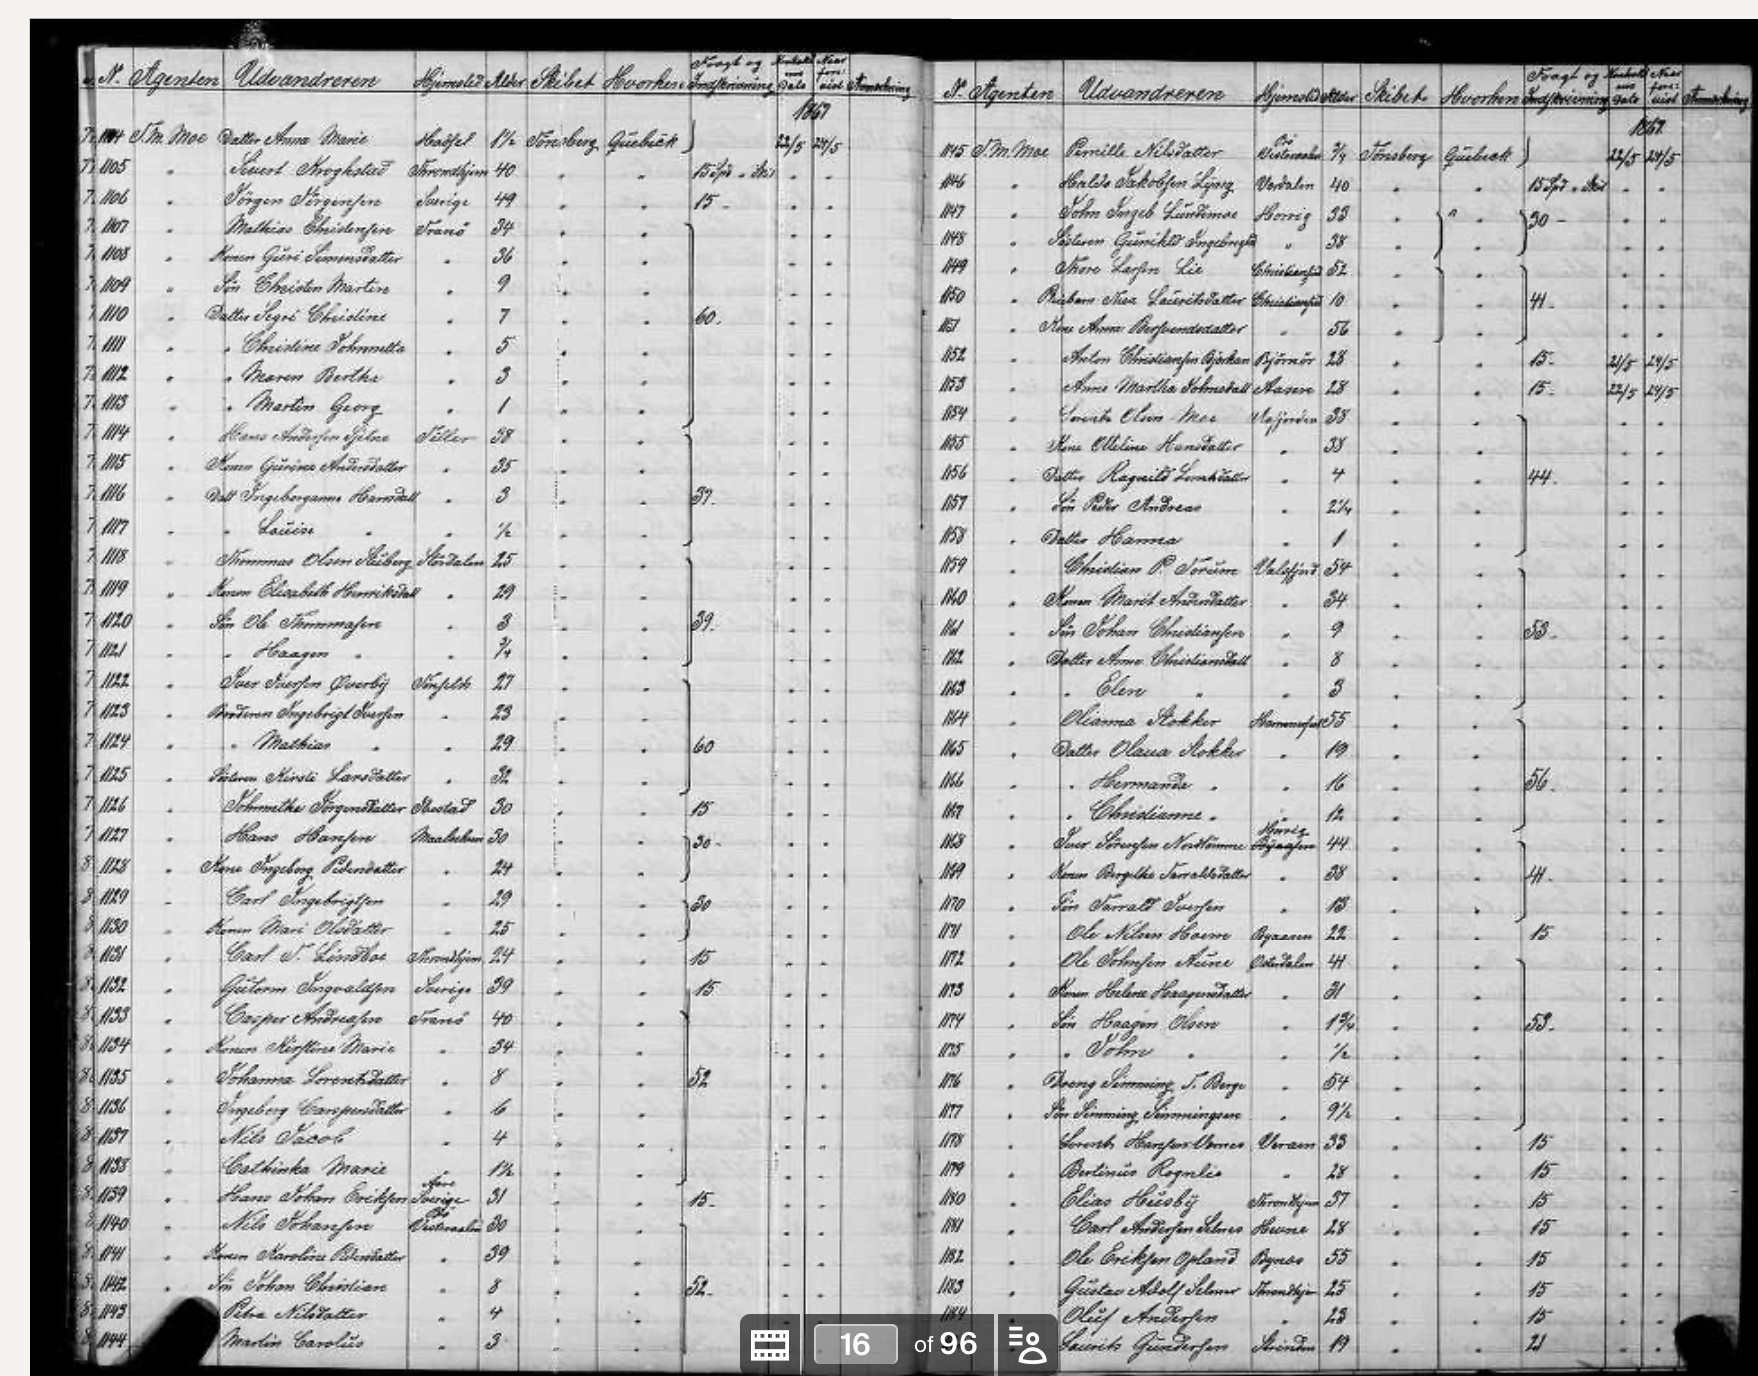 N. Agenten Udvandreren Hjemsted Alder Skibet Hvorhen Fragt og Indskrivning Anmerkning
1867
1104 J.M. Moe Datter Anna Marie Hadsel 1½ Tönsberg Quebeck 22/5 24/5
1105 " Sivert Kroghstad Throndhjem 40 " " 15 Spd " Skil " "
1106 " Jörgen Jörgensen Sverige 49 " " 15 - " "
1107 " Mathias Christensen Tranö 34 " " " "
1108 " Konen Guri Simonsdatter " 36 " " " "
1109 " Sön Christen Martin " 9 " " " "
1110 " Datter Segri Christine " 7 " " 60. " "
1111 " " Christine Johnnetta " 5 " " " "
1112 " " Maren Berthe " 3 " " " "
1113 " " Martin Georg " 1 " " " "
1114 " Hans Andersen Tiller 38 " " " "
1115 " Konen Gurine Andersdatter " 35 " " " "
1116 " Datt Ingeborganna Hansdatt " 3 " " 37. " "
1117 " " Louise " " ½ " " " "
1118 " Thommas Olsen Stördalen 25 " " " "
1119 " Konen Elisabeth Henriksdatt " 29 " " " "
1120 " Sön Ole Thommasen " 3 " " 39. " "
1121 " " Haagen " " ¾ " " " "
1122 " Iver Iversen Överby 27 " " " "
1123 " Broderen Ingebrigt Iversen " 23 " " " "
1124 " " Mathias " " 29 " " 60 " "
1125 " Södteren Kirsti Larsdatter " 32 " " " "
1126 " Johnnetha Jörgensdatter Ibestad 30 " " 15 " "
1127 " Hans Hansen 30 " " 30 - " "
1128 " Kone Ingeborg Pedersdatter 24 " " " "
1129 " Carl Ingebrigtsen 29 " " 30 " "
1130 " Konen Mari Olsdatter 25 " " " "
1131 " Carl T. Lindboe Throndhjem 24 " " 15 " "
1132 " Gutorm Ingvaldsen Sverige 39 " " 15 " "
1133 " Casper Andreasen Tranö 40 " " " "
1134 " Konen Kirstine Marie " 34 " " " "
1135 " Johanna Lorentsdatter " 8 " " 52 " "
1136 " Ingeborg Caspersdatter " 6 " " " "
1137 " Nils Jacob " 4 " " " "
1138 " Cathinka Marie " 1½ " " " "
1139 " Hans Johan Eriksen Sverige 31 " " 15 - " "
1140 " Nils Johansen Bö Vesteraalen 30 " " " "
1141 " Konen Karoline Pedersdatter " 39 " " " "
1142 " Sön Johan Christian " 8 " " 52 - " "
1143 " Petra Nilsdatter " 4 " " " "
1144 " Martin Carolus " 3 " " " "
N. Agenten Udvandreren Hjemsted Alder Skibet Hvorhen Fragt og Indskrivning Anmerkning
1867
1145 J.M. Moe Pernille Nilsdatter Bö Vesteraalen ¾ Tönsberg Quebeck 22/5 24/5
1146 " Jakobsen Verdalen 40 " " 15 Spd " Skil " "
1147 " John Ingeb Lundemoe 33 " " 30 - " "
1148 " Södteren Gunhild " 38 " " " "
1149 " Thore Larsen Lie 52 " " " "
1150 " Lauritsdatter 10 " " 41. " "
1151 " Kone Anna " 56 " " " "
1152 " Anton Christiansen Björnör 28 " " 15 - 21/5 24/5
1153 " Anne Martha Aasen 28 " " 15 - 22/5 24/5
1154 " Olsen Moe 38 " " " "
1155 " Kone Otteline Hansdatter 38 " " " "
1156 " Datter Ragnild 4 " " 44. " "
1157 " Sön Peder Andreas " 2¼ " " " "
1158 " Datter Hanna " 1 " " " "
1159 " Christian P. Torum Valsfjord 54 " " " "
1160 " Konen Marit Andersdatter " 34 " " " "
1161 " Sön Johan Christiansen " 9 " " 53 - " "
1162 " Datter Anne Christiansdatt 8 " " " "
1163 " " Elen " " 3 " " " "
1164 " Olianna Stokker Hammerfest 55 " " " "
1165 " Datter Olava Stokker " 19 " " " "
1166 " " Hermande " " 16 " " 56. " "
1167 " " Christianne " 12 " " " "
1168 " Iver Sörensen 44 " " " "
1169 " Konen Bergithe Tarraldsdatter " 38 " " 41 - " "
1170 " Sön Tarrald Iversen " 13 " " " "
1171 " Ole Nilsen Byaasen 22 " " 15 " "
1172 " Ole Johnsen Aune Österdalen 41 " " " "
1173 " Konen Helene Haagensdatter " 31 " " " "
1174 " Sön Haagen Olsen " 1¾ " " 53 - " "
1175 " " John " " ½ " " " "
1176 " Simming T. Berge " 54 " " " "
1177 " Sön Simming Simmingsen " 9½ " " " "
1178 " Hansen 33 " " 15 " "
1179 " Bertinus Rognlie " 28 " " 15 " "
1180 " Elias Husby Throndhjem 37 " " 15 " "
1181 " Carl Andersen Selnes Hevne 28 " " 15 " "
1182 " Ole Eriksen Opland Bynes 55 " " 15 " "
1183 " Gustav Adolf Selmer Throndhjem 25 " " 15 " "
1184 " Oluf Andersen " 23 " " 15
" Laurits Gundersen Strinden 19 " " 21
16 of 96